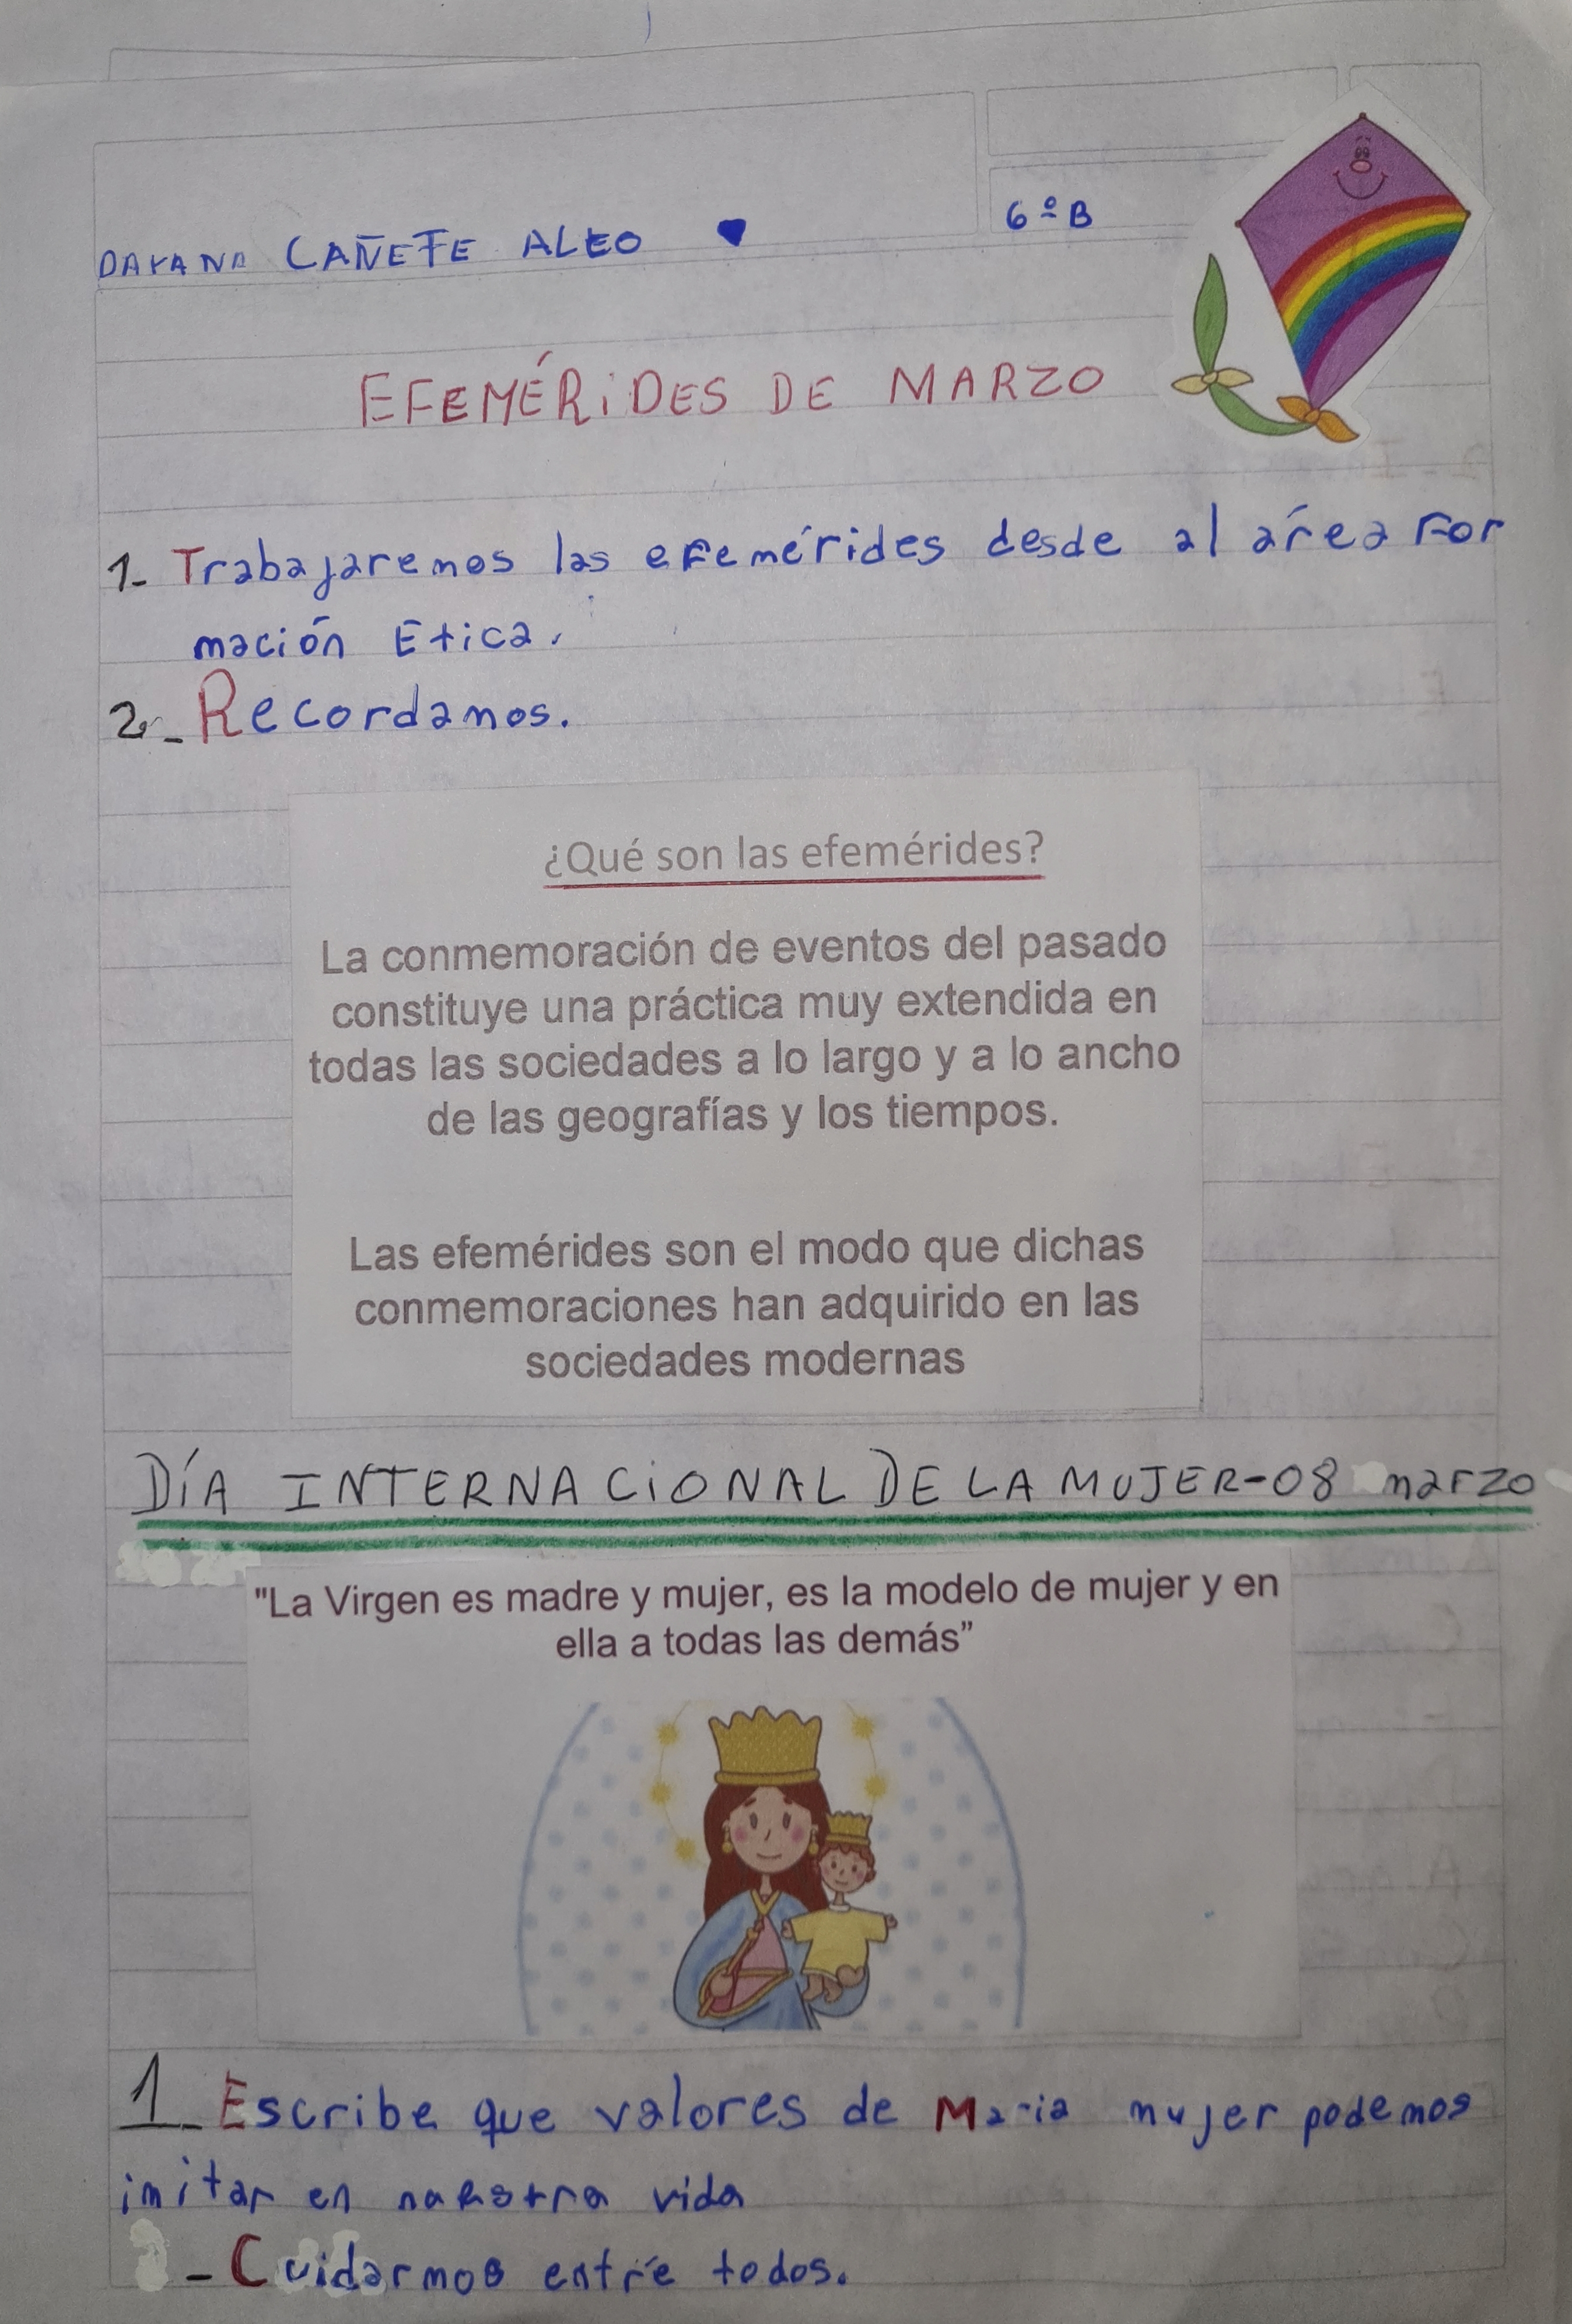 6º B
DAYANA CAÑETE ALEO
EFEMÉRIDES DE MARZO
1- Trabajaremos las efemérides desde al área For
mación Etica.
2.- Recordamos.
¿Qué son las efemérides?
La conmemoración de eventos del pasado
constituye una práctica muy extendida en
todas las sociedades a lo largo y a lo ancho
de las geografías y los tiempos.
Las efemérides son el modo que dichas
conmemoraciones han adquirido en las
sociedades modernas
DÍA INTERNACIONAL DE LA MUJER-08 marzo
"La Virgen es madre y mujer, es la modelo de mujer y en
ella a todas las demás”
1- Escribe que valores de Maria mujer podemos
imitar en nuestra vida
- Cuidarmos entre todos.